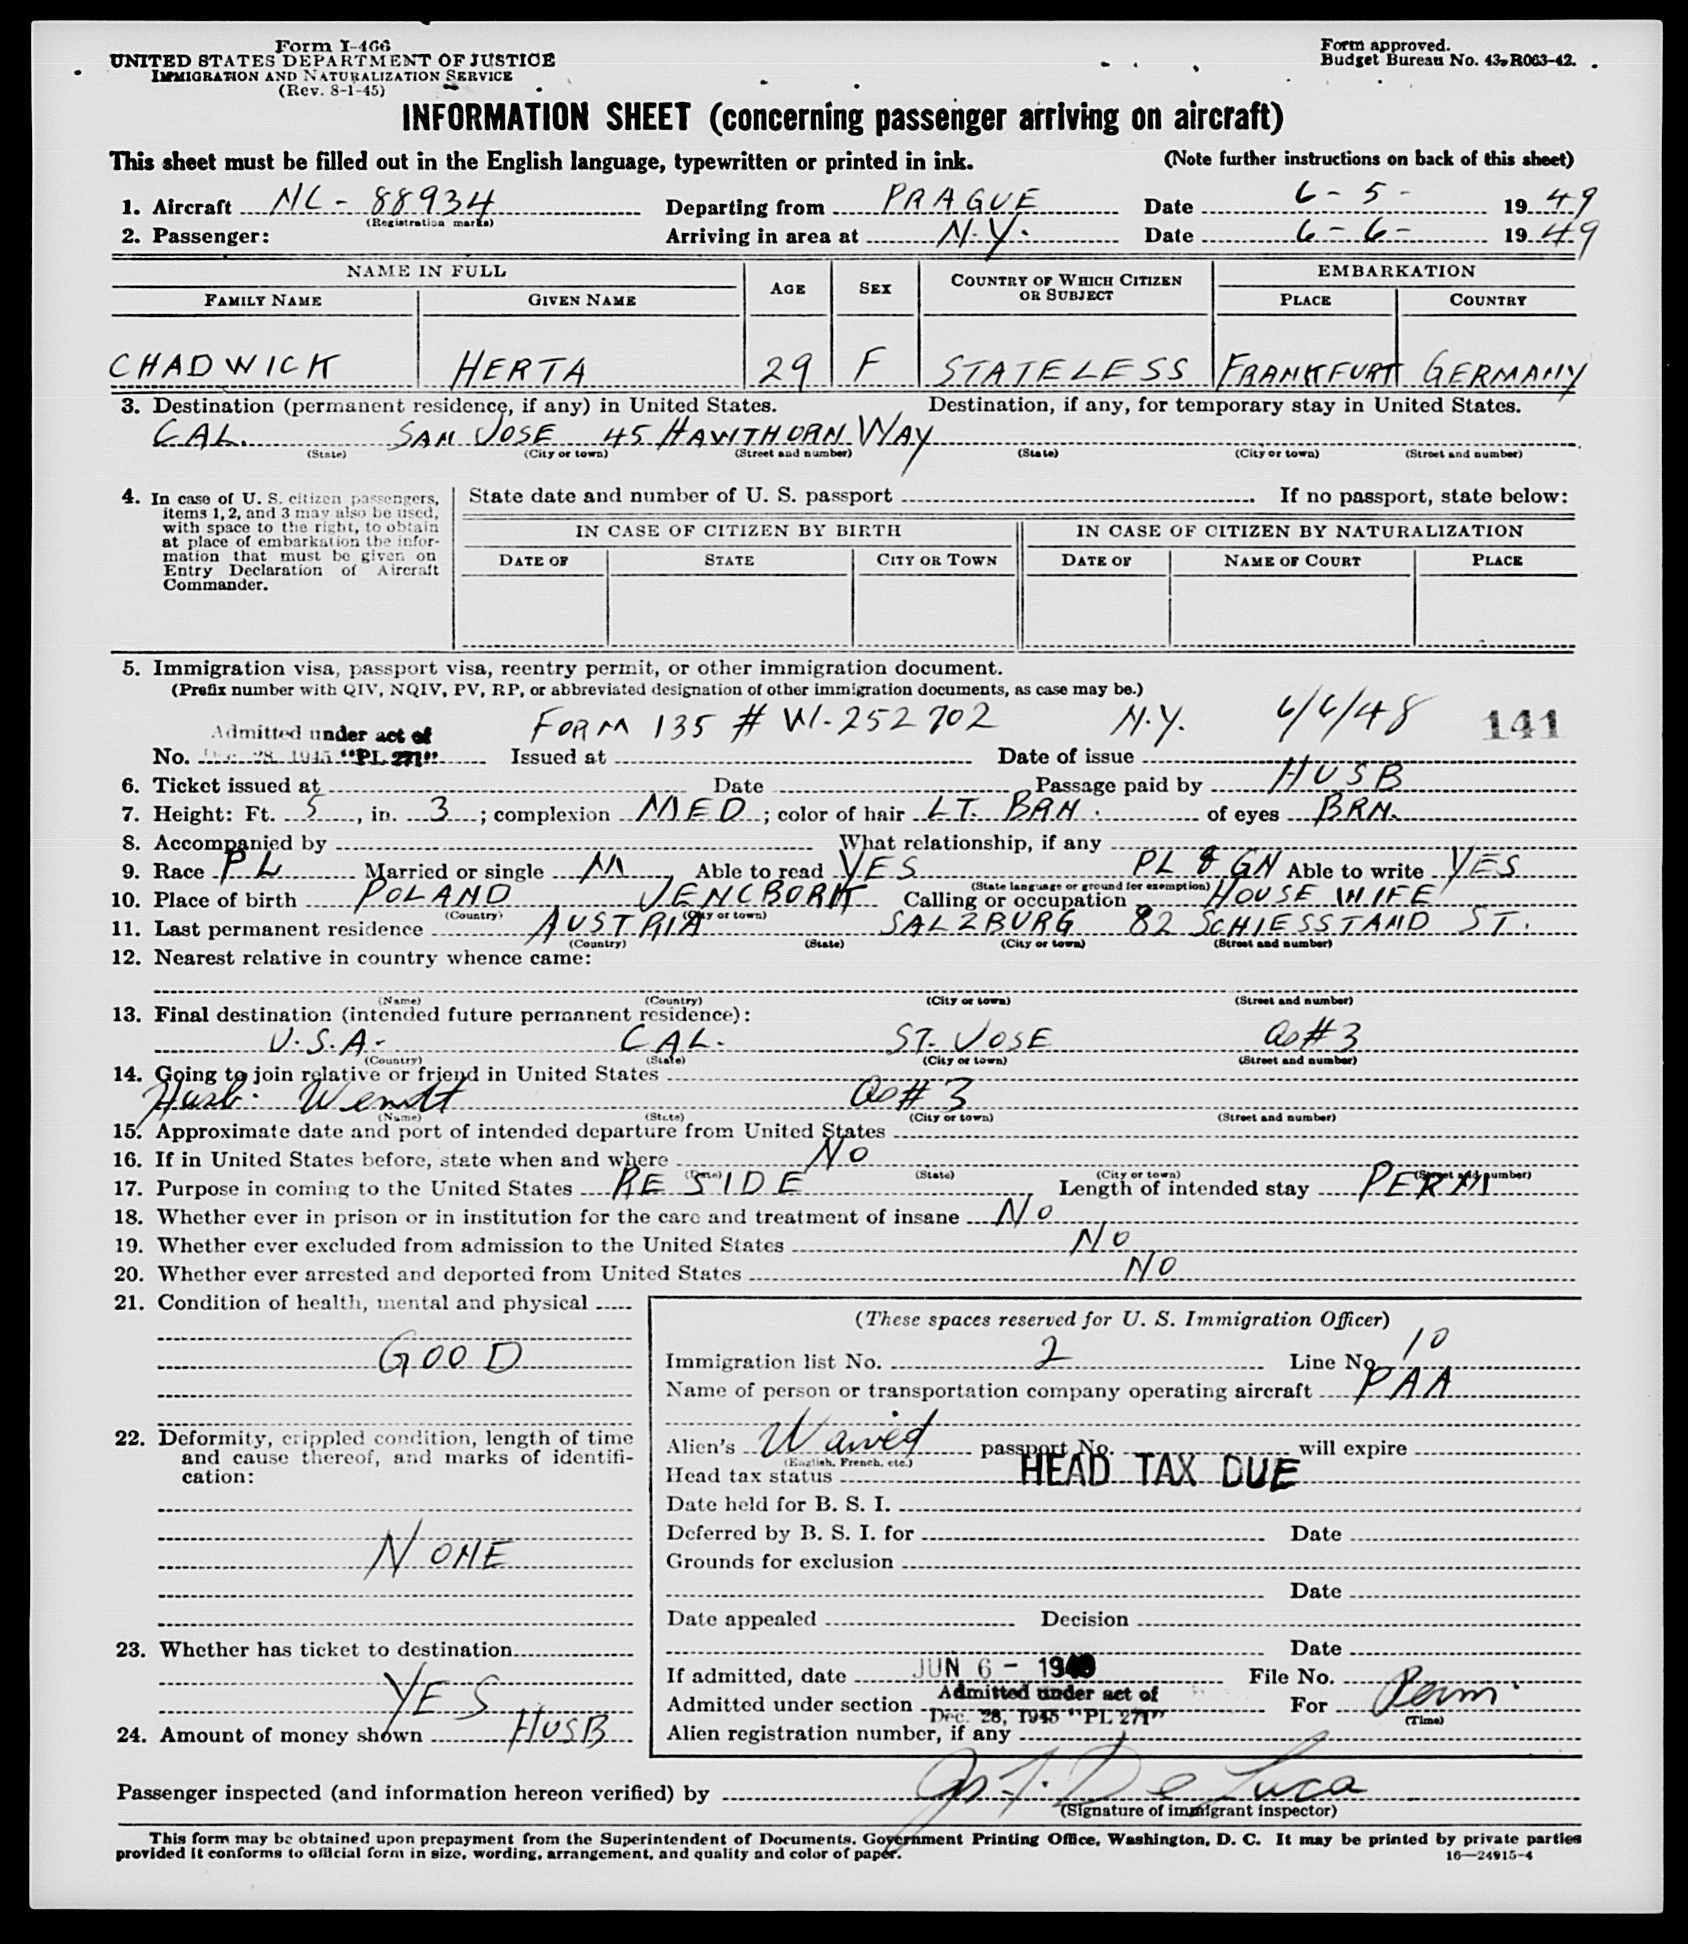 Form I-466
UNITED STATES DEPARTMENT OF JUSTICE
IMMIGRATION AND NATURALIZATION SERVICE
(Rev. 8-1-45)
Form approved.
Budget Bureau No. 43-R063-42.
INFORMATION SHEET (concerning passenger arriving on aircraft)
This sheet must be filled out in the English language, typewritten or printed in ink. (Note further instructions on back of this sheet)
1. Aircraft NC-88934 Departing from PRAGUE Date 6-5- 1949
(Registration marks)
2. Passenger: Arriving in area at N.Y. Date 6-6- 1949
NAME IN FULL AGE SEX COUNTRY OF WHICH CITIZEN OR SUBJECT EMBARKATION
FAMILY NAME GIVEN NAME PLACE COUNTRY
CHADWICK HERTA 29 F STATELESS FRANKFURT GERMANY
3. Destination (permanent residence, if any) in United States. Destination, if any, for temporary stay in United States.
CAL. SAN JOSE 45 HAWTHORN WAY
(State) (City or town) (Street and number) (State) (City or town) (Street and number)
4. In case of U. S. citizen passengers, items 1, 2, and 3 may also be used, with space to the right, to obtain at place of embarkation the information that must be given on Entry Declaration of Aircraft Commander.
State date and number of U. S. passport If no passport, state below:
IN CASE OF CITIZEN BY BIRTH IN CASE OF CITIZEN BY NATURALIZATION
DATE OF STATE CITY OR TOWN DATE OF NAME OF COURT PLACE
5. Immigration visa, passport visa, reentry permit, or other immigration document.
(Prefix number with QIV, NQIV, PV, RP, or abbreviated designation of other immigration documents, as case may be.)
Admitted under act of FORM 135 # W-252702 N.Y. 6/6/48 141
No. Dec. 28, 1945 "PL 271" Issued at Date of issue
6. Ticket issued at Date Passage paid by HUSB
7. Height: Ft. 5, in. 3; complexion MED; color of hair LT. BRN. of eyes BRN.
8. Accompanied by What relationship, if any
9. Race PL Married or single M Able to read YES PL & GN Able to write YES
(State language or ground for exemption)
10. Place of birth POLAND JENCBORK Calling or occupation HOUSE WIFE
(Country) (City or town)
11. Last permanent residence AUSTRIA SALZBURG 82 SCHIESSTAND ST.
(Country) (State) (City or town) (Street and number)
12. Nearest relative in country whence came:
(Name) (Country) (City or town) (Street and number)
13. Final destination (intended future permanent residence):
U.S.A. CAL. ST. JOSE as #3
(Country) (State) (City or town) (Street and number)
14. Going to join relative or friend in United States
Husb. as #3
(Name) (State) (City or town) (Street and number)
15. Approximate date and port of intended departure from United States
16. If in United States before, state when and where NO
(Date) (State) (City or town) (Street and number)
17. Purpose in coming to the United States RESIDE Length of intended stay PERM
18. Whether ever in prison or in institution for the care and treatment of insane NO
19. Whether ever excluded from admission to the United States NO
20. Whether ever arrested and deported from United States NO
21. Condition of health, mental and physical
GOOD
22. Deformity, crippled condition, length of time and cause thereof, and marks of identification:
NONE
23. Whether has ticket to destination
YES
24. Amount of money shown HUSB
(These spaces reserved for U. S. Immigration Officer)
Immigration list No. 2 Line No. 10
Name of person or transportation company operating aircraft PAA
Alien's Waived passport No. will expire
(English, French, etc.)
Head tax status HEAD TAX DUE
Date held for B. S. I.
Deferred by B. S. I. for Date
Grounds for exclusion
Date
Date appealed Decision
Date
If admitted, date JUN 6 - 1949 File No.
Admitted under section Admitted under act of Dec. 28, 1945 "PL 271" For Perm.
(Time)
Alien registration number, if any
Passenger inspected (and information hereon verified) by Jos. F. De Luca
(Signature of immigrant inspector)
This form may be obtained upon prepayment from the Superintendent of Documents, Government Printing Office, Washington, D. C. It may be printed by private parties
provided it conforms to official form in size, wording, arrangement, and quality and color of paper.
16—24915-4